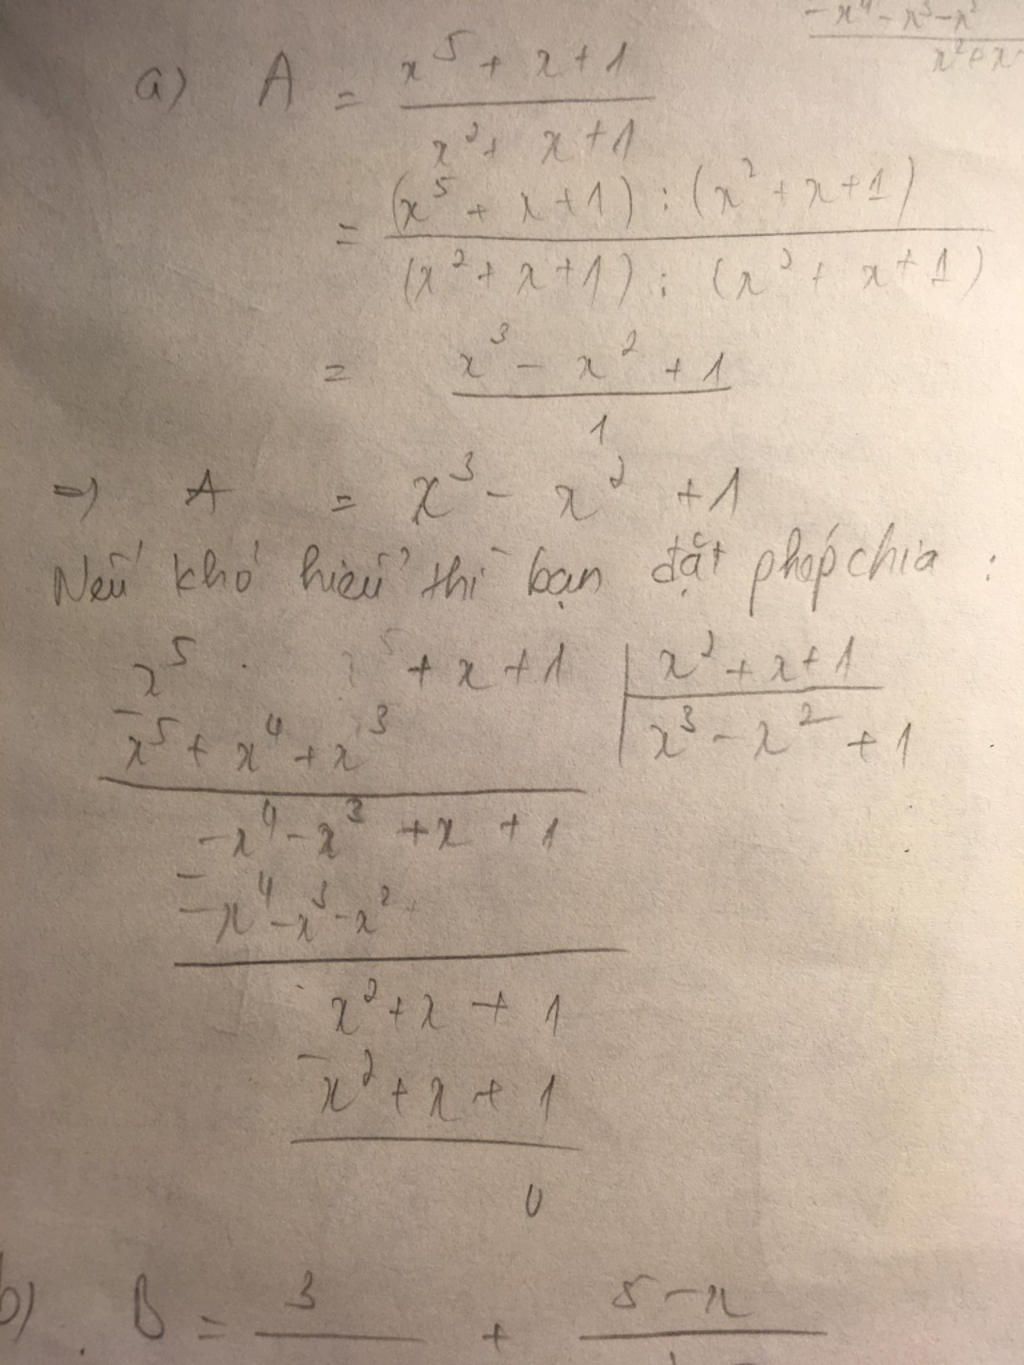 -x⁴ - x³ - x²
x² + x
a) A = (x⁵ + x + 1) / (x² + x + 1)
= ((x⁵ + x + 1) : (x² + x + 1)) / ((x² + x + 1) : (x² + x + 1))
= (x³ - x² + 1) / 1
=> A = x³ - x² + 1
Nếu khó hiểu thì bạn đặt phép chia :
x⁵ + x + 1 | x² + x + 1
- x⁵ + x⁴ + x³ | x³ - x² + 1
-x⁴ - x³ + x + 1
- -x⁴ - x³ - x²
x² + x + 1
- x² + x + 1
0
b) B = 3 + 5 - x